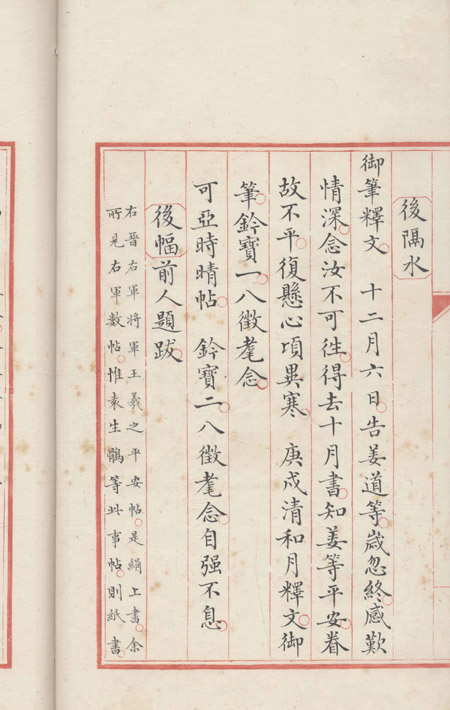 後隔水
御筆釋文　十二月六日告姜道等歲忽終感歎
情深念汝不可往得去十月書知姜等平安眷
故不平復懸心頃異寒　庚戌清和月釋文御
筆鈐寶一八徵耄念
可亞時晴帖　鈐寶二八徵耄念自强不息
後幅前人題跋
右晉右軍將軍王羲之平安帖是絹上書余
所見右軍數帖惟袁生鸝等此事帖則紙書